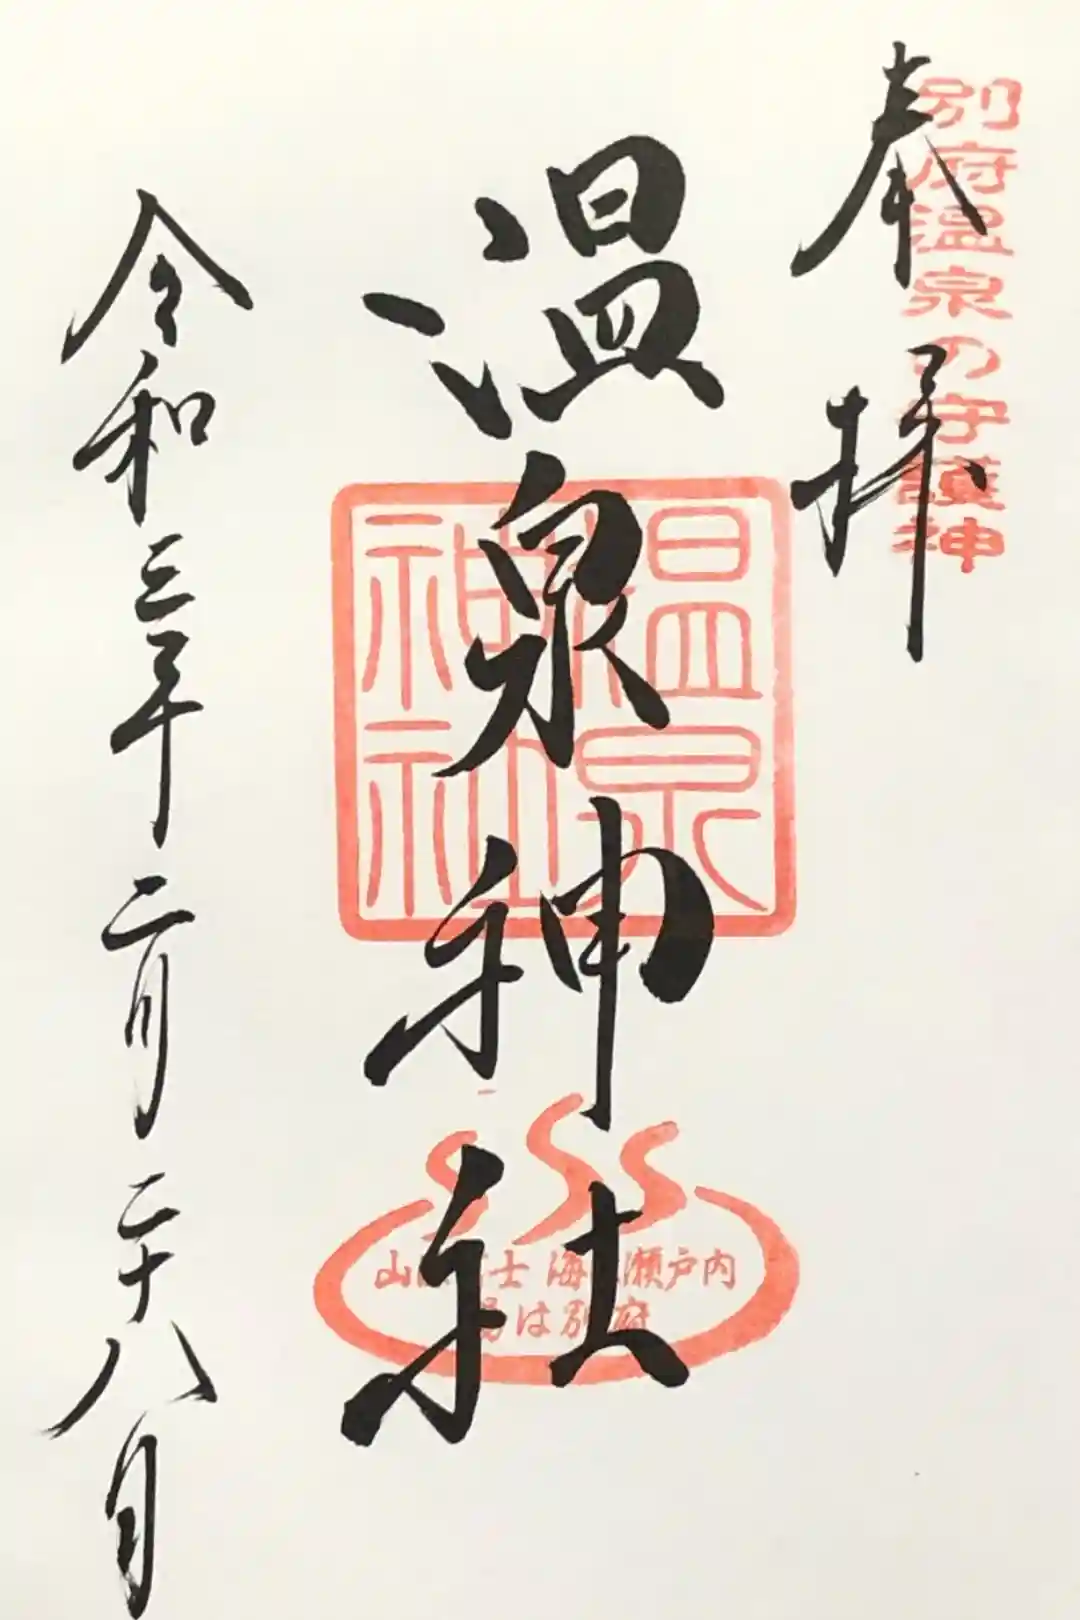 奉拝
別府温泉の守護神
温泉神社
温泉
神社
山は富士 海は瀬戸内
湯は別府
令和三年二月二十八日